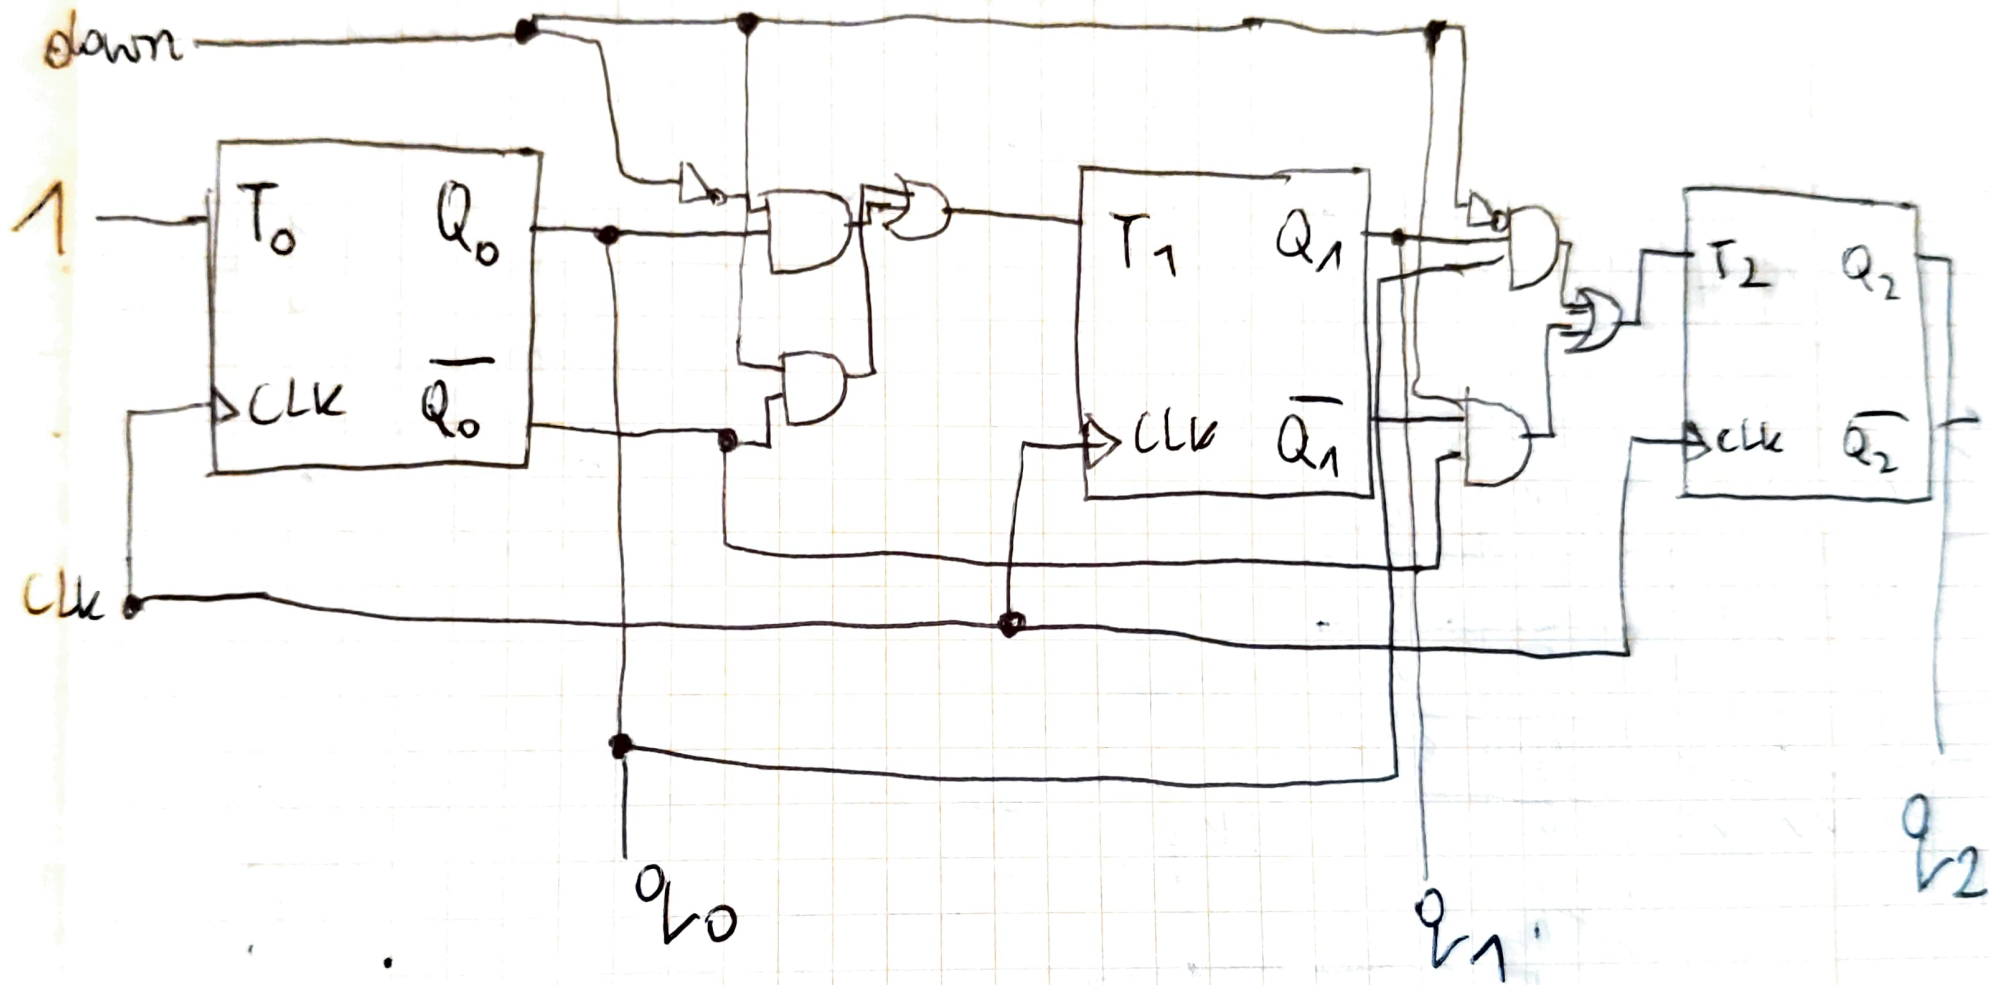 down
1
T0 Q0
CLK Q̅0
T1 Q1
CLK Q̅1
T2 Q2
CLK Q̅2
CLK
q0
q1
q2